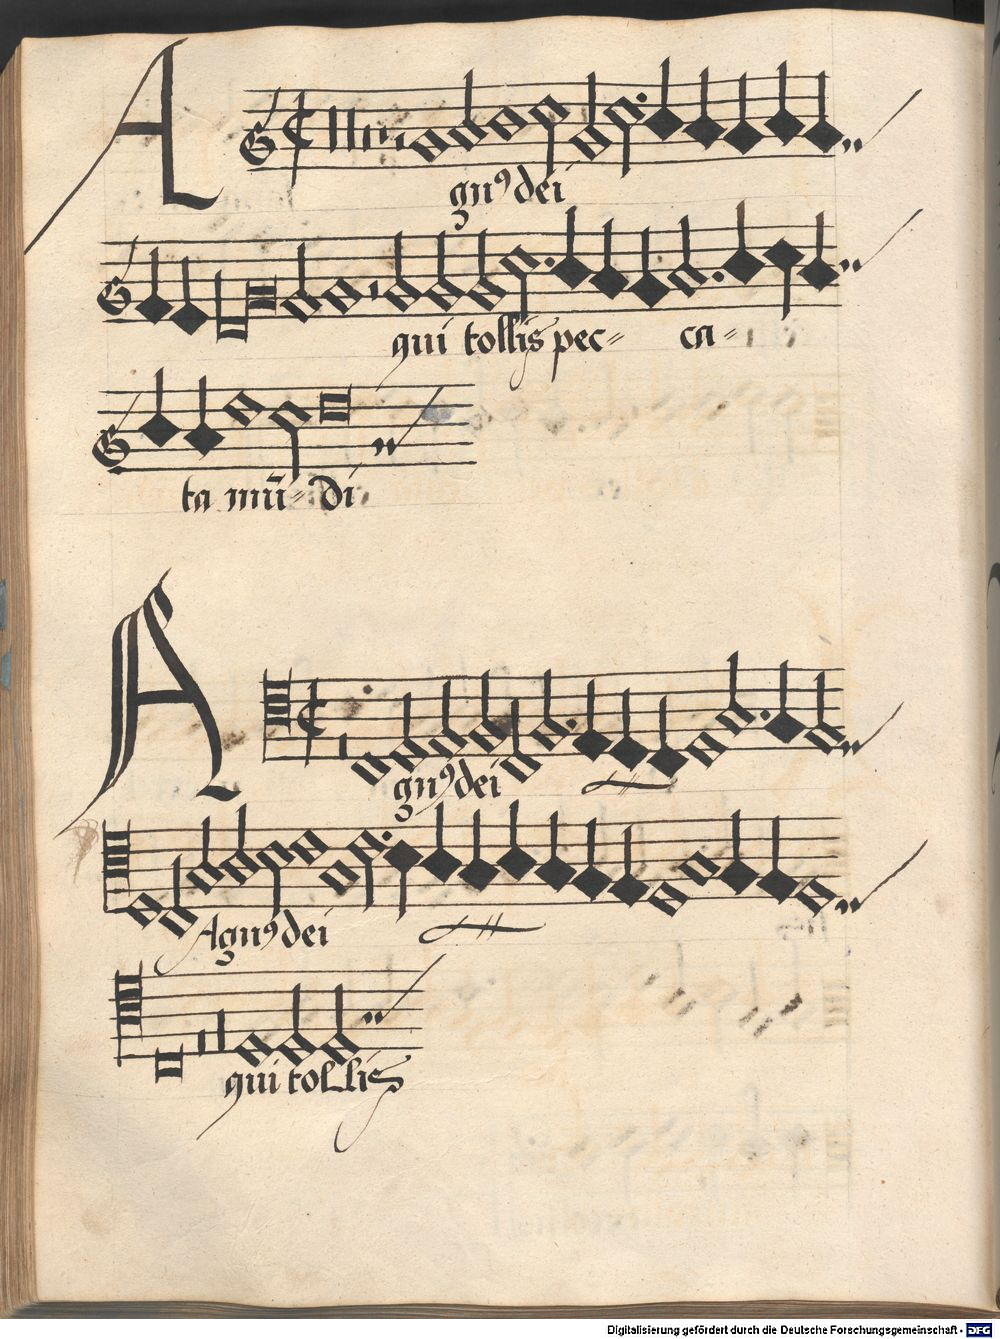 A
gnꝰ dei
qui tollis pec- ca-
ta mū- di
A
gnꝰ dei
Agnꝰ dei
qui tollis
Digitalisierung gefördert durch die Deutsche Forschungsgemeinschaft - DFG